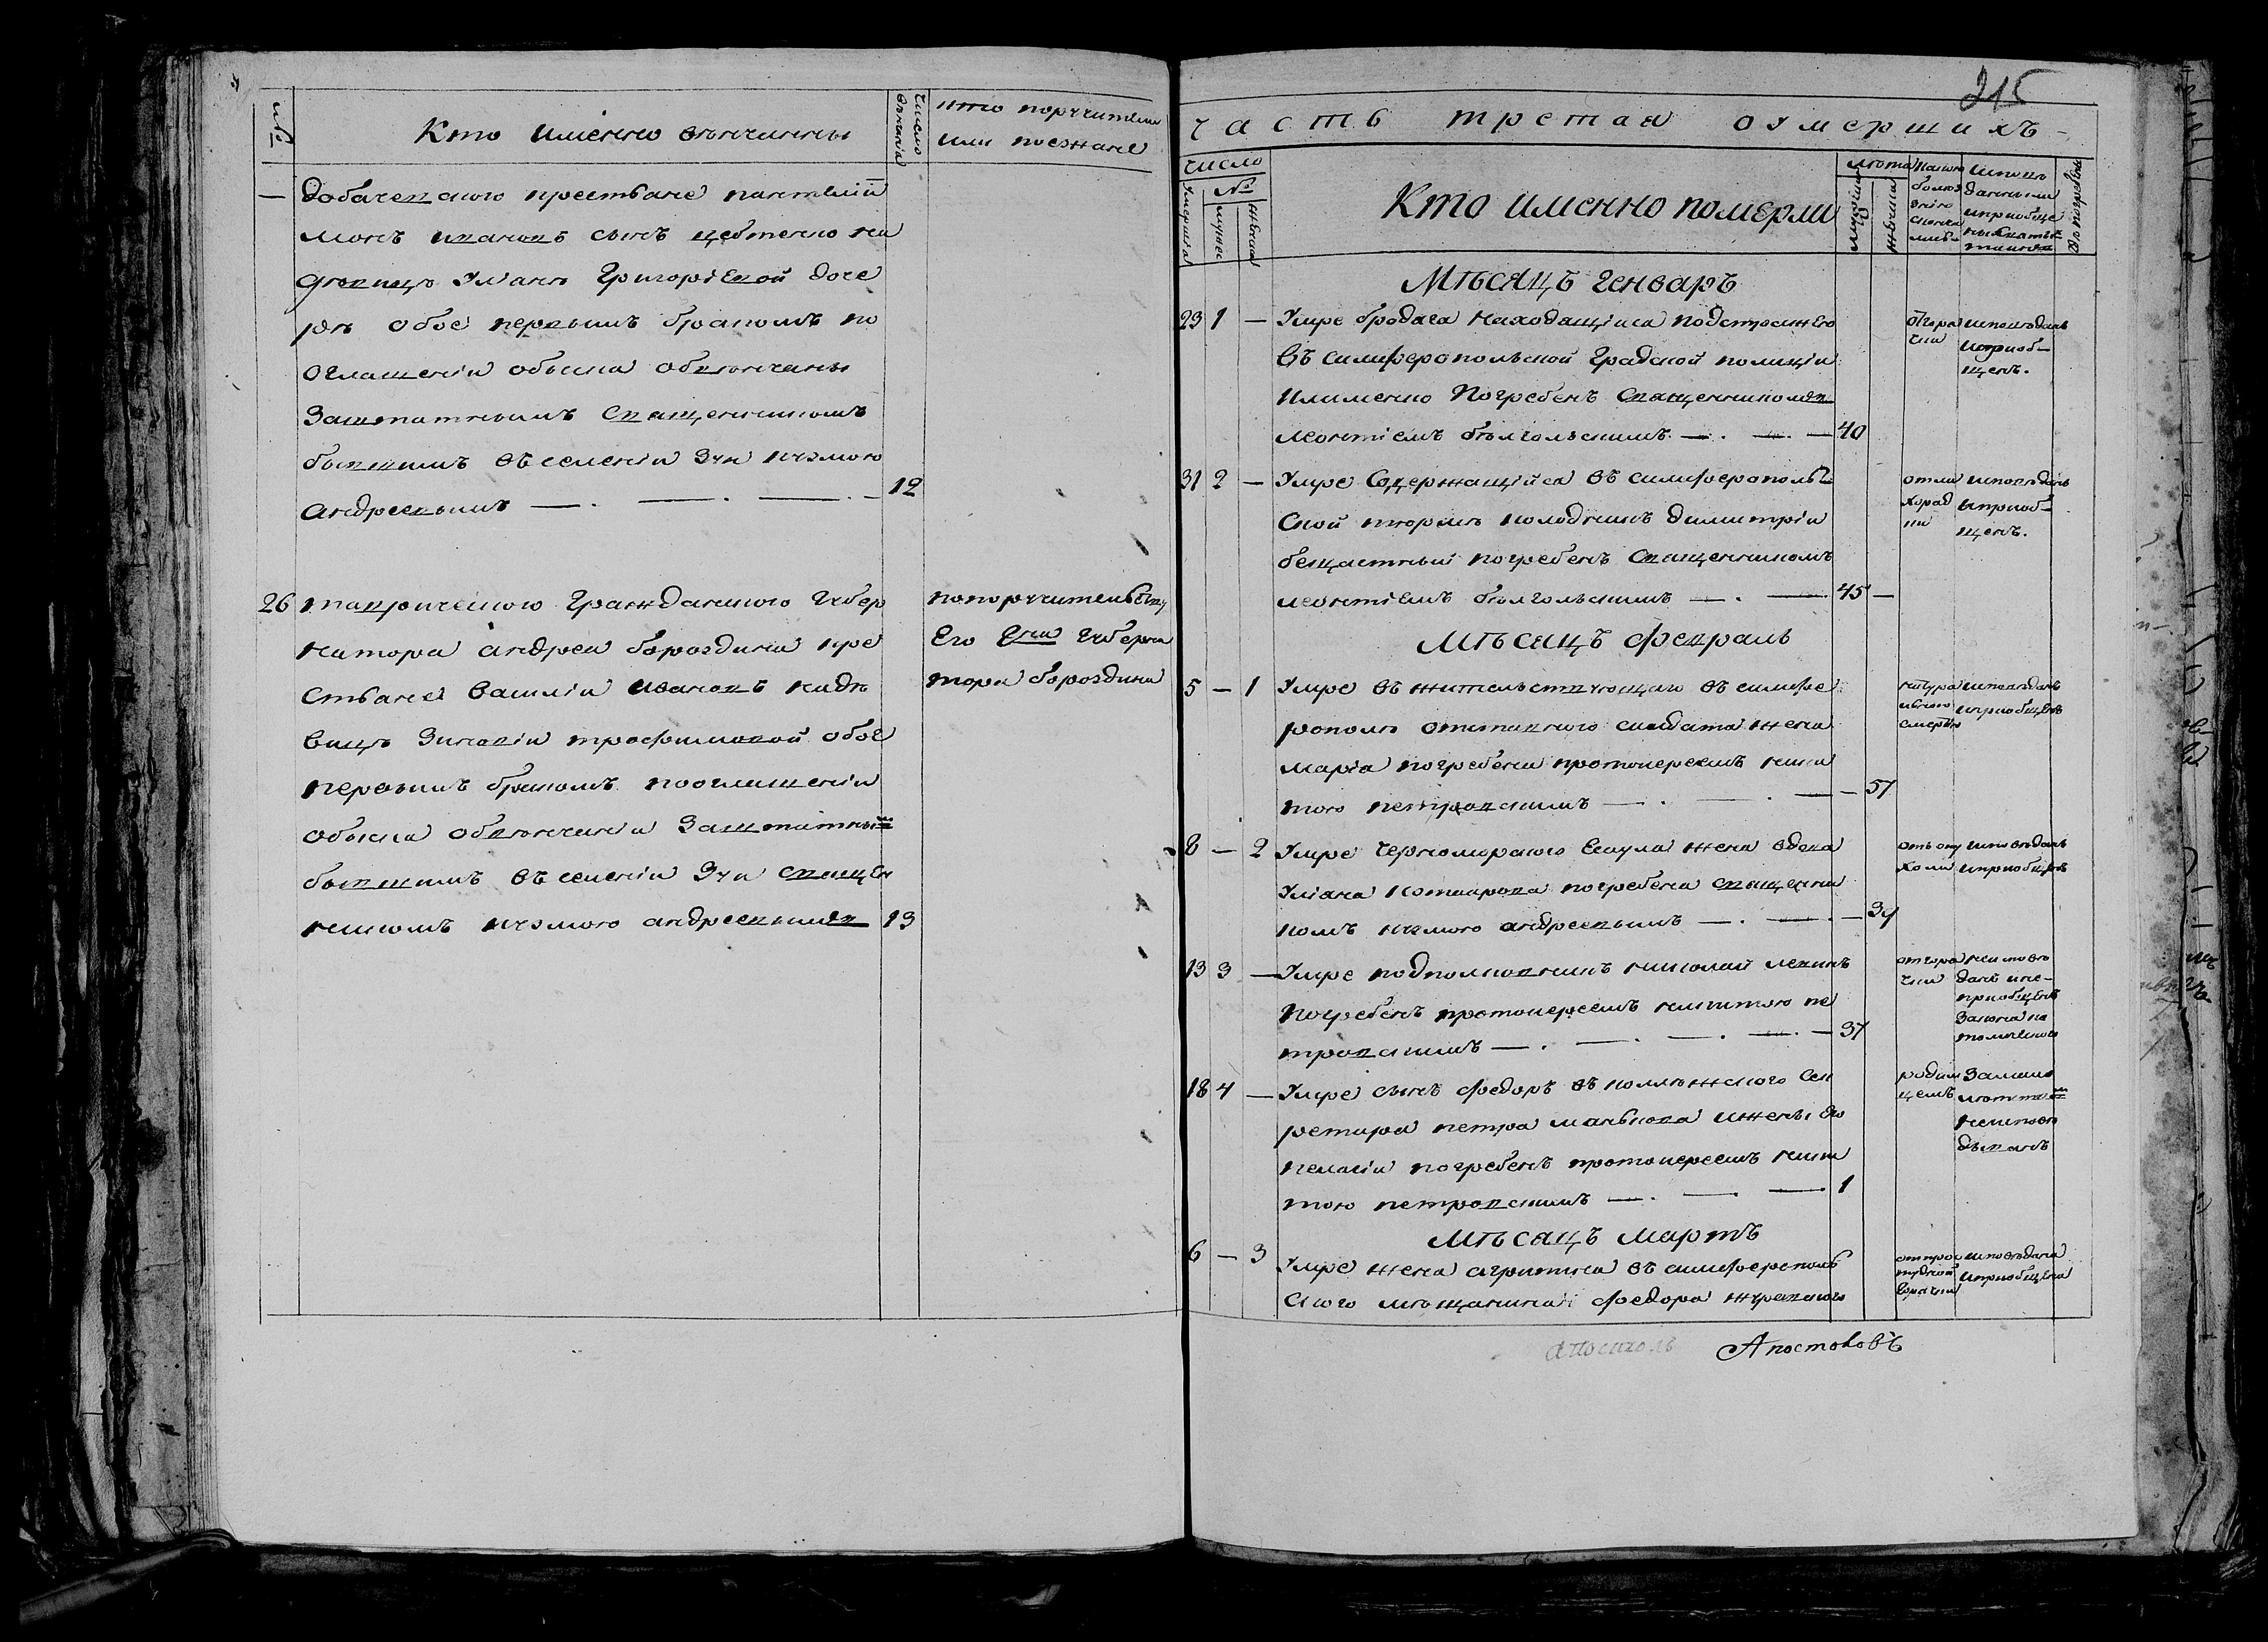 №
Кто именно венчанны
Число венчанія
кто поручители
или поезжане
— Добачевского крестьане пантелій
монъ ивановъ сынъ цебтенко на
девицѣ Уліаню Григоріевой доче
рѣ обое первымъ бракомъ по
оглашеніи обыска обвенчаны
Заштатнымъ Священникомъ
бывшимъ въ селеніи Зуи кузмою
андреевымъ — . — . — . — 12
26 таврического Гражданского Губер
натора андреа бороздина кре
стьанеѣ василіи ивановъ на дѣ
вицѣ Зиновіи трофимовой обое
первымъ бракомъ по оглашеніи
обыска обвенчаніи Заштатным
бывшимъ въ селеніи Зуи Священ
никомъ кузмою андреевымъ 13
по поручительству
Его Губерна
тора бороздина
215
часть третая о умершихъ
число
Умершіа
№
мужес
женска
Кто именно померли
лѣта
мужеска
женска
Какою
болез
нію
исповѣ
данны и
приобще
ны
Мѣсяцъ генваръ
23 1 — Умре бродяга находащійса под стражею
въ симферопольской градской полиціи
Погребенъ Священникомъ
леонтіемъ — . — . — 40
от гора
чки
исповѣданъ
и приоб-
щенъ.
31 2 — Умре Содержащійса въ симферополь
ской тюрмѣ колодникъ димитріи
бещастный погребенъ Священникомъ
леонтіемъ — . — 45 —
исповѣданъ
и приоб-
щенъ.
Мѣсяцъ февраль
5 — 1 Умре въ жительствующаго въ симфе
рополѣ отставного салдата жена
маріа погребена протоиереемъ ники
тою петровскимъ — . — . — — 57
натура
лною
смертію
исповѣданъ
и приобщенъ
8 — 2 Умре черноморского Есаула жена вдова
Уліана Комиарова погребена священни
комъ кузмою андреевымъ — . — . — 34
отъ опу
холи
исповѣданъ
и приобщенъ
13 3 — Умре подполковникъ николай левинъ
Погребенъ протоиереемъ никитою пе
тровскимъ — . — . — . — . — 37
от гора
чки
не исповѣ
данъ и не-
приобщенъ
18 4 — Умре сынъ федоръ въ коллежского Сек
ретара петра манькова и жены его
пелагіи погребенъ протоиереемъ ники
тою петровскимъ — . — . — . 1
родим
цемъ
За мало
лѣтства
не исповѣ
дыванъ
Мѣсяцъ мартъ
6 — 3 Умре жена агрипина въ симферополь
ского мѣщанина федора журавского
от про
студной
горачки
исповѣдана
и приобщена
Апостоловъ